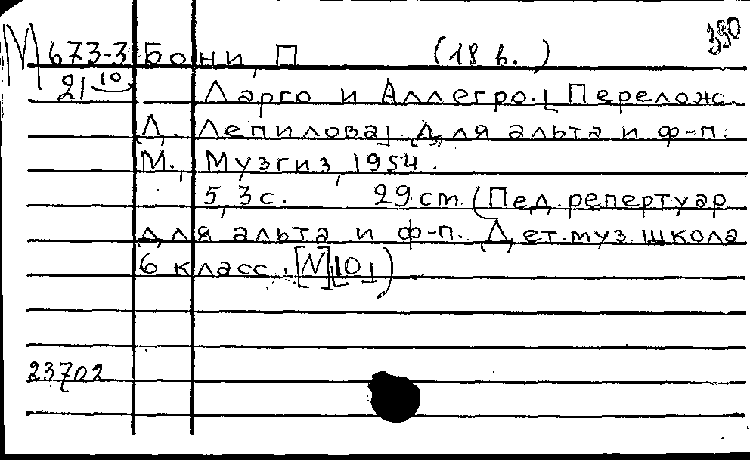 М 673-3 Бони, П (18 в.)
21 10 Ларго и Аллегро. [Перелож.
Д. Лепилова] Для альта и ф-п.
М., Музгиз, 1954.
5, 3 с. 29 cm. (Пед. репертуар
для альта и ф-п. Дет. муз. школа
6 класс. [N][10])
23702